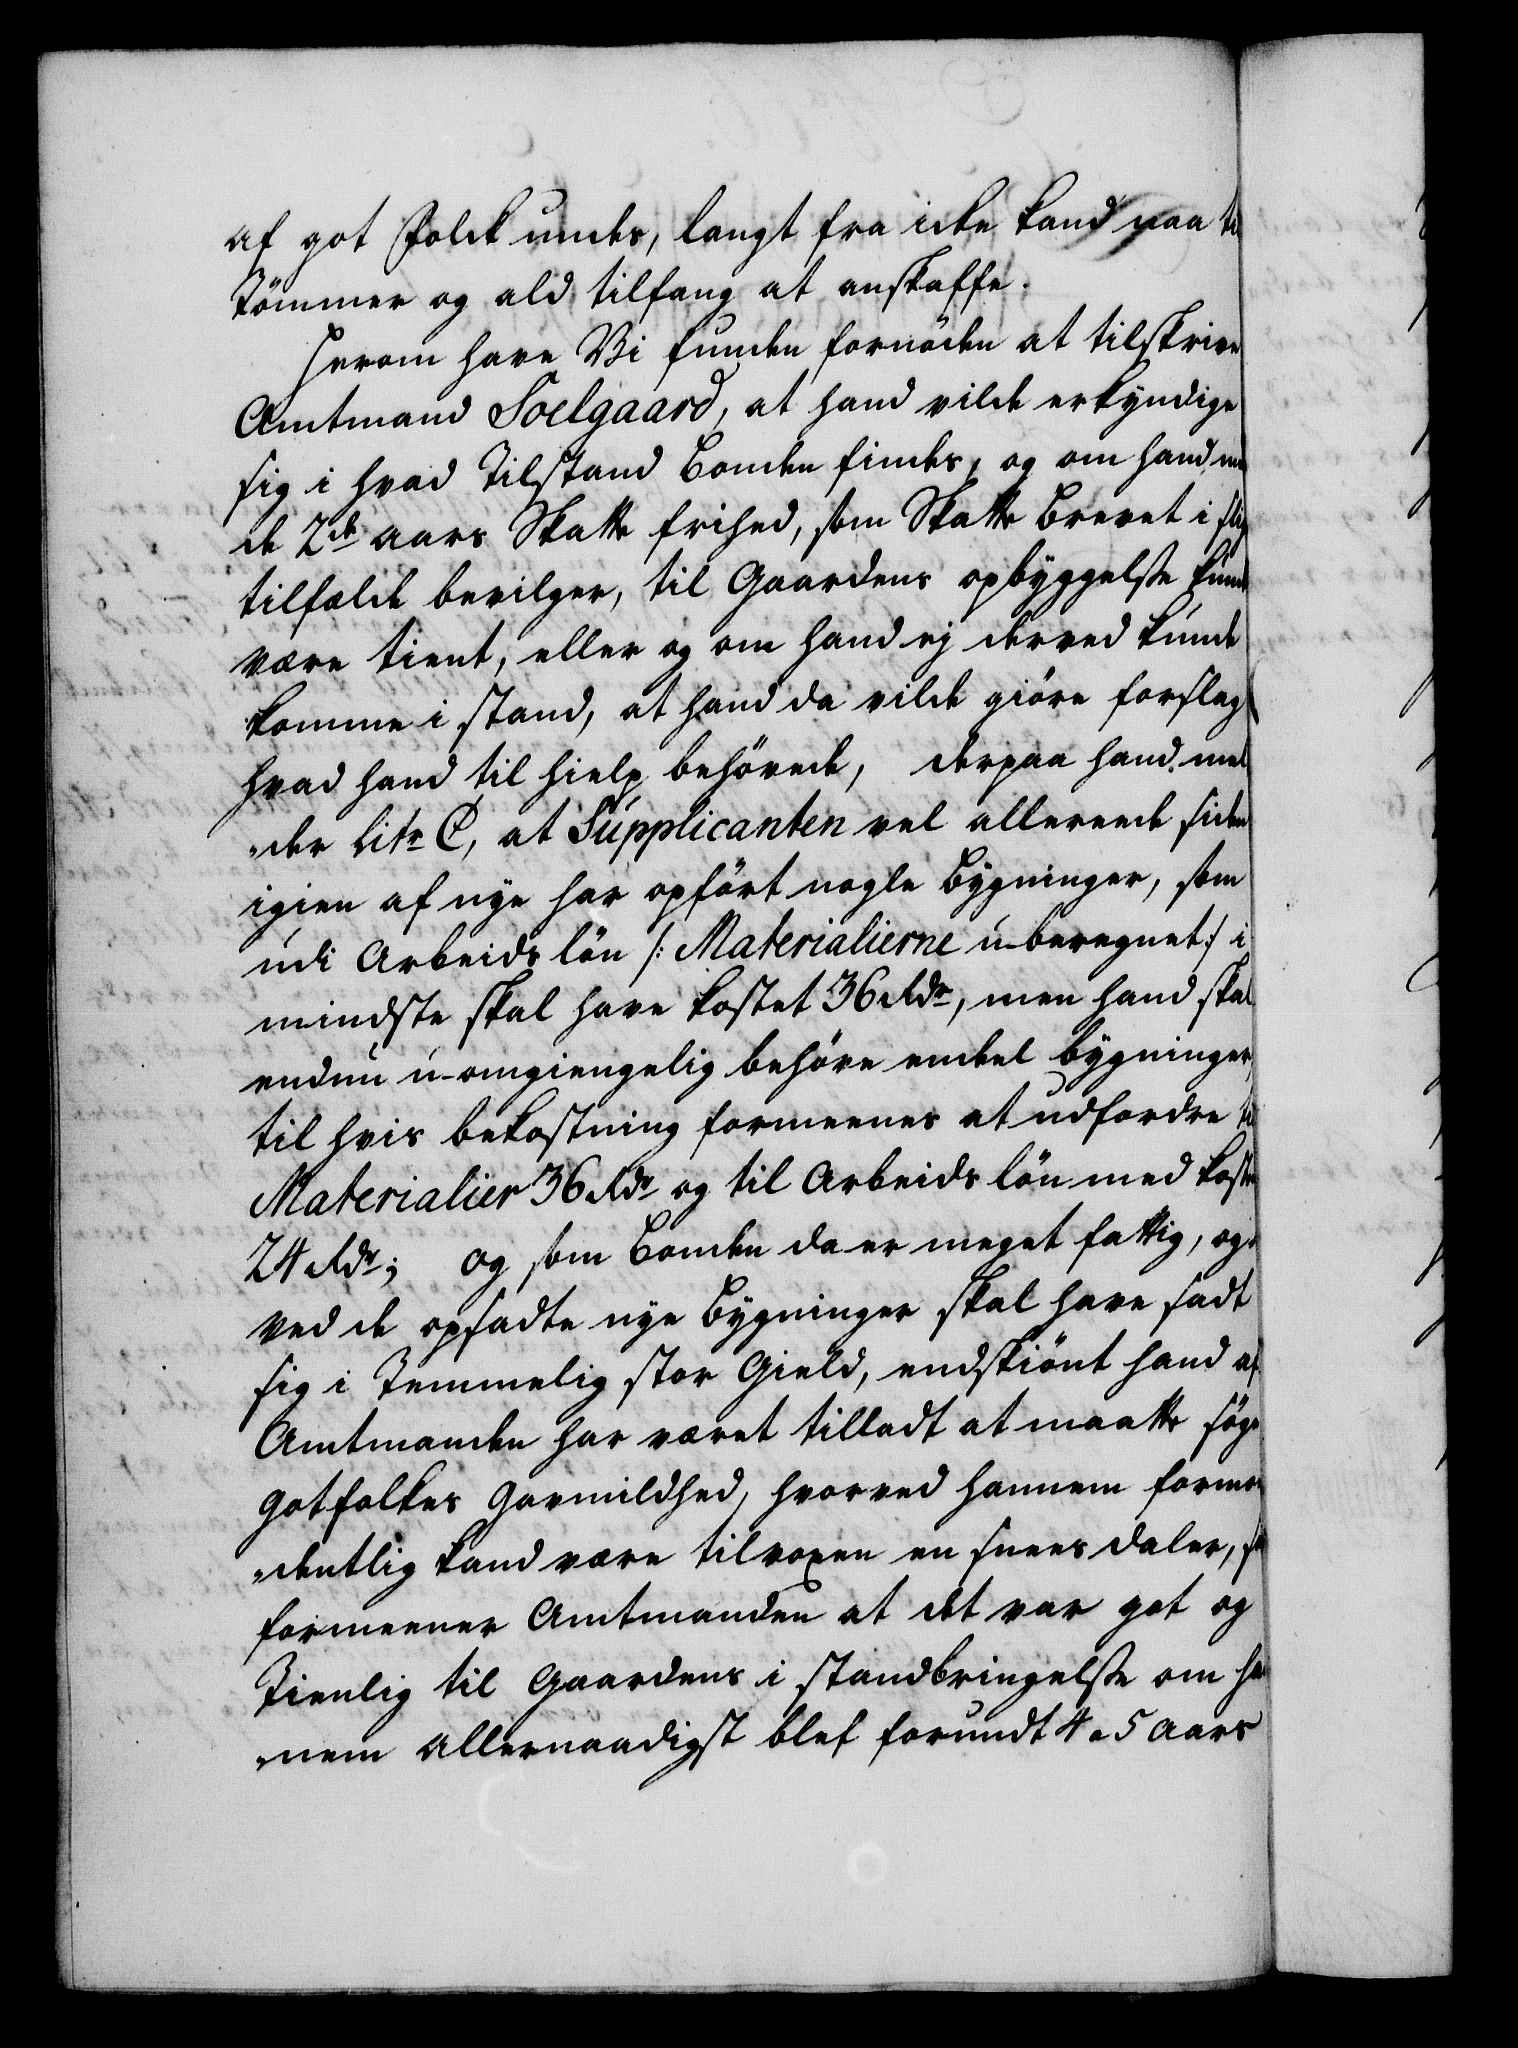 af got Folck undes, langt fra icke kand naa til
Tömmer og ald tilfang at anskaffe.
Herom have Vi funden fornöden at tilskrive
Amtmand Soelgaard, at hand vilde erkyndige
sig i hvad Tilstand Bonden findes, og om hand med
de 2de aars Skatte frihed, som Skatte Brevet i slig
tilfælde bevilger, til Gaardens opbyggelse kunde
være tient, eller og om hand ej derved kunde
komme i stand, at hand da vilde giöre forslag
hvad hand til hielp behövede, derpaa hand mel
„der litr C, at Supplicanten vel allereede siden
igien af nye har opfört nogle Bygninger, som
udi Arbeids lön /: Materialierne u-beregnet :/ i
mindste skal have kostet 36 Rdr, men hand skal
endnu u-omgiengelig behöve endel bygninger,
til hvis bekostning formeenes at udfordre til
Materialier 36 Rdr og til Arbeids lön med kost
24 Rdr; og som Bonden da er meget fattig, og
ved de opsadte nye Bygninger skal have sadt
sig i Temmelig stor Gield, endskiönt hand af
Amtmanden har været tilladt at maatte söge
Gotfolkes Gavmildhed, hvorved hannem formo
„dentlig kand være tilvoxen en snees daler, saa
formeener Amtmanden at det var got og
Tienlig til Gaardens i standbringelse om han
„nem allernaadigst blef forundt 4 a 5 Aars